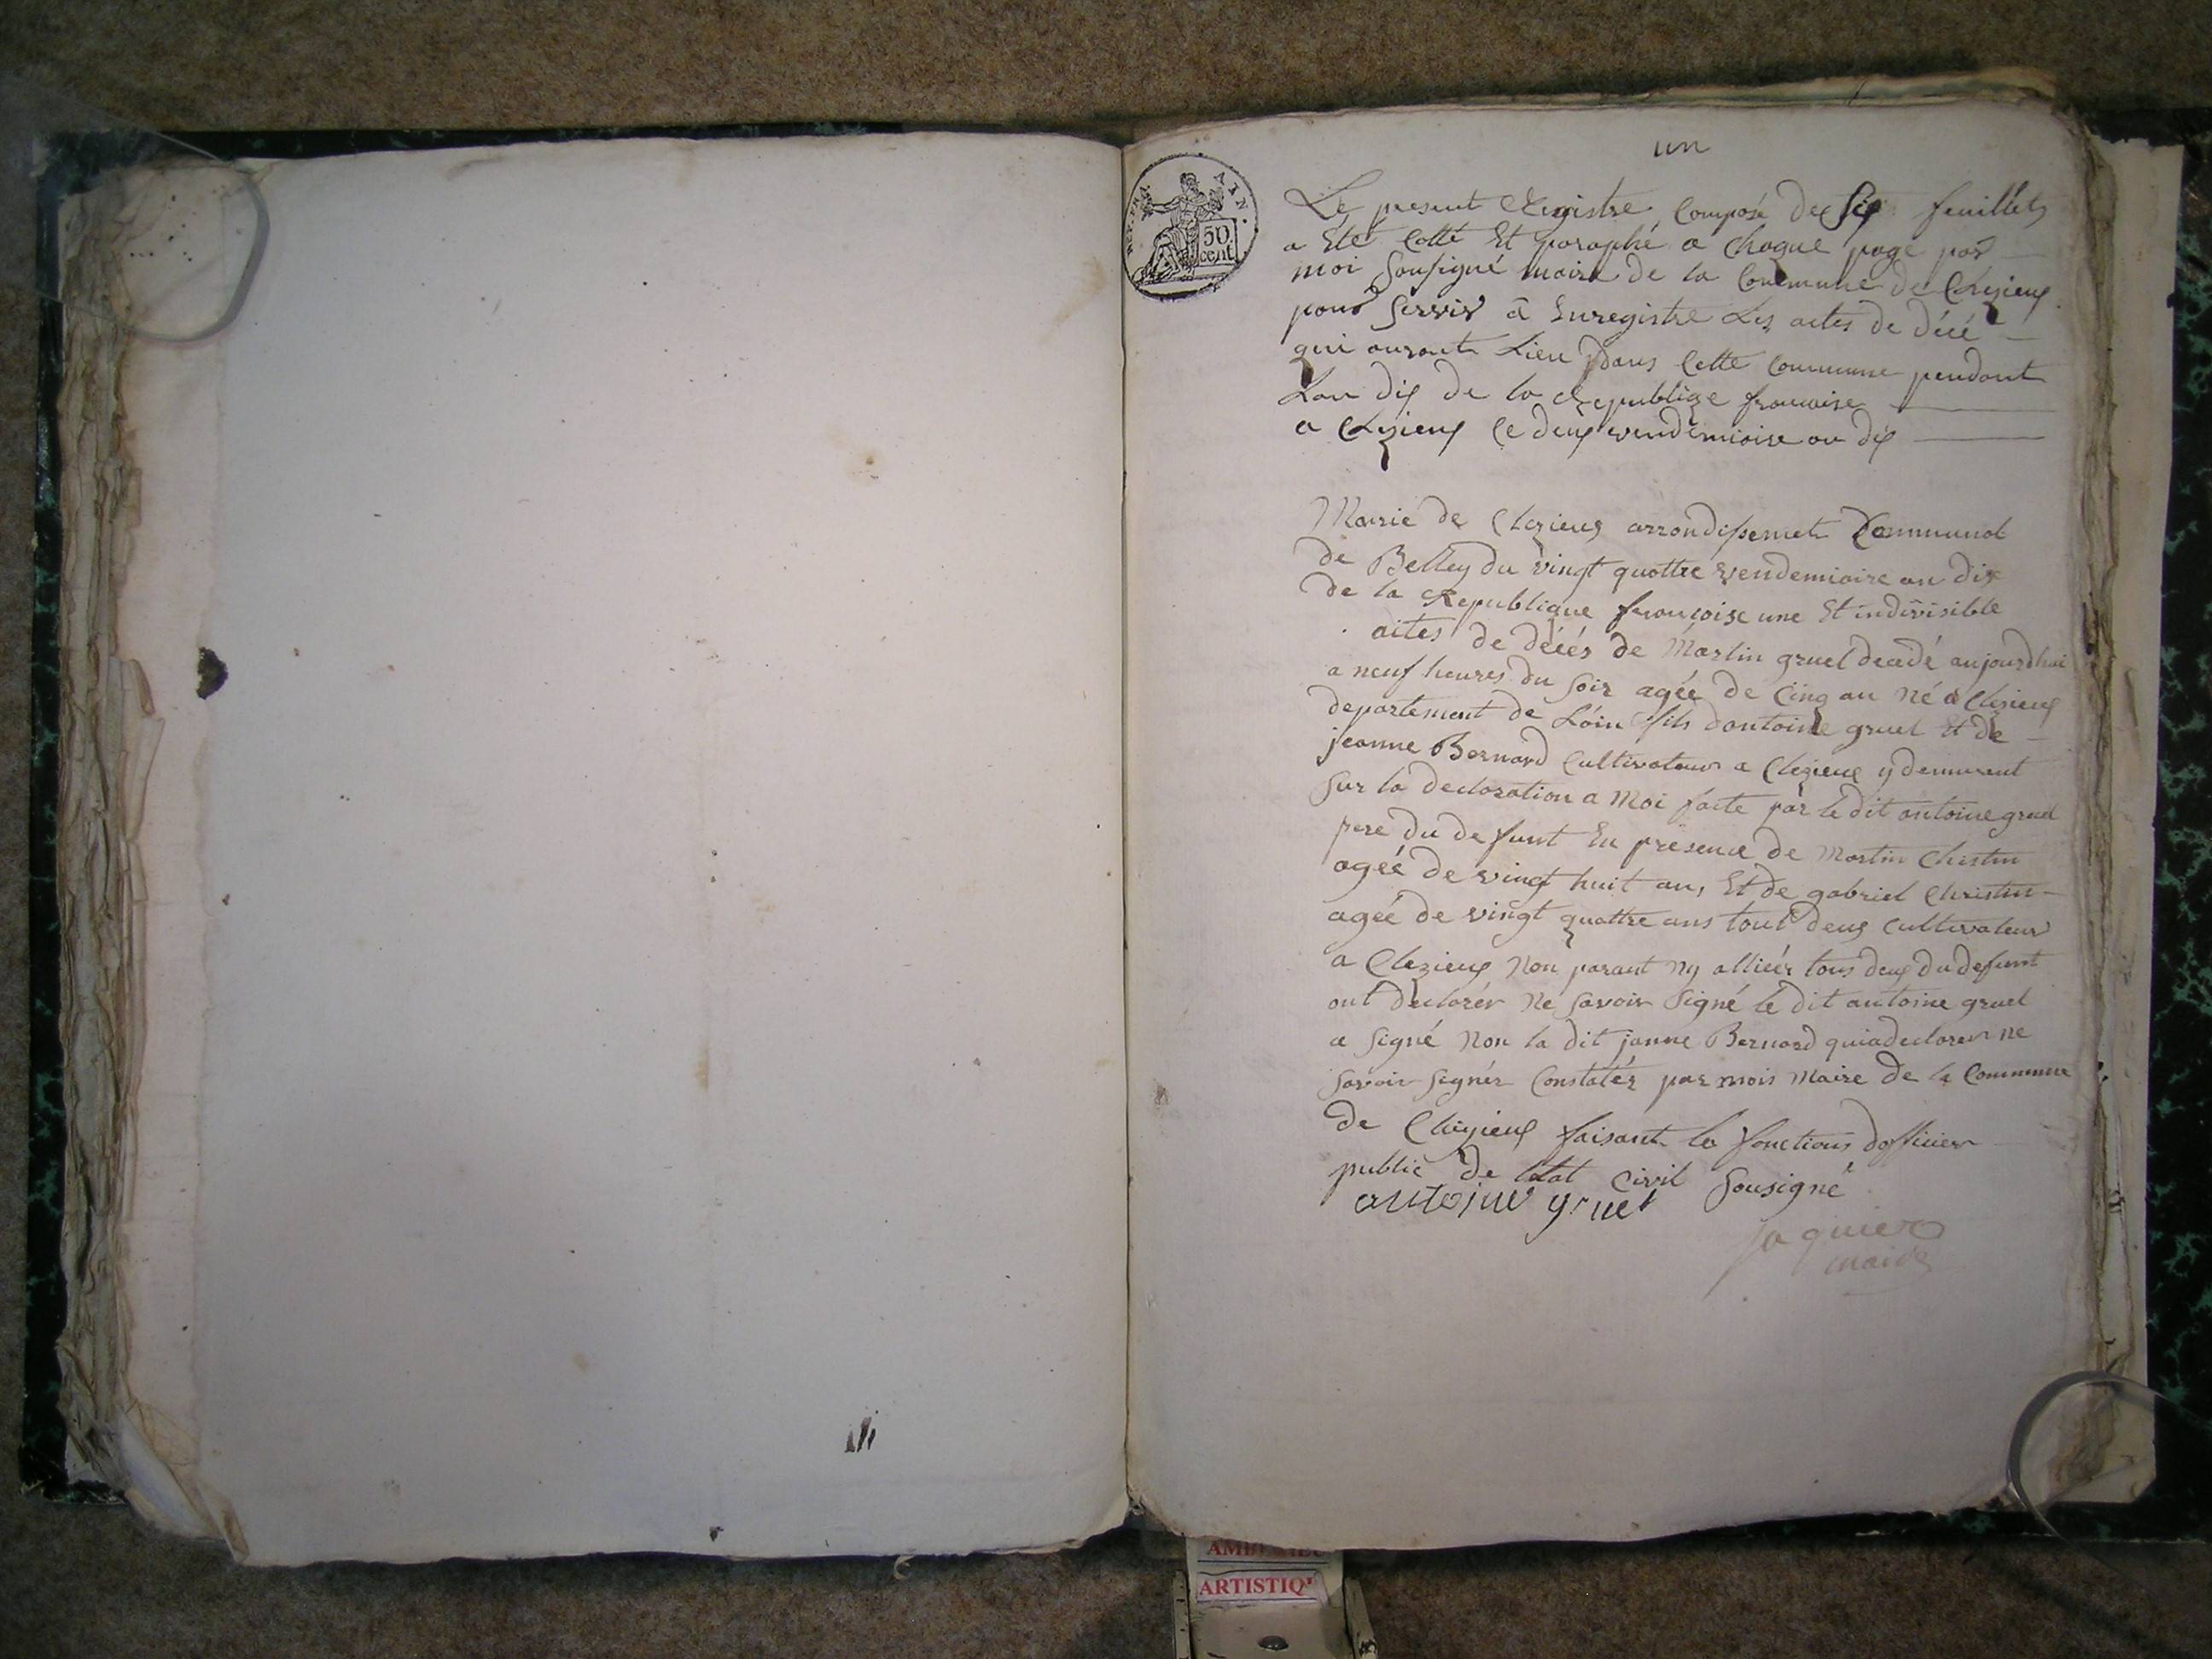 un
50
cent
Le present Registre Composé de Six feuillets
a Eté Cotté Et paraphé a Chaque page par
moi Sousigné maire de la Commune de Cleyzieux
pour Servir a Enregistre Les actes de décé
qui auront Lieu Dans Cette Commune pendant
Lan dix de la Republiqe francoise
a Clezieux Ce deux vendemiaire an dix
Mairie de Clezieux arrondissemet Communal
de Belley du vingt quattre vendemiaire an dix
de la Republique françoise une Et indivisible
actes de décés de Martin gruel decedé aujourdhui
a neuf heures du soir agée de Cinq an né a Clezieux
departement de Lain fils dantoine gruel Et de
jeanne Bernard Cultivateur a Clezieux y demurent
Sur la declaration a Moi faite par le dit antoine gruel
pere du defunt En présence de Martin Christin
agée de vingt huit ans Et de gabriel Christin
agée de vingt quattre ans tout deux Cultivateur
a Clezieux Non parant ny alliér tous deux du defunt
ont declarér Ne Savoir Signé le dit antoine gruel
a Signé Non la dit janne Bernard qui a declarer ne
Savoir Signér Constatér par mois Maire de la Commune
de Cleyzieux faisant la fonctions dofficier
public de létat Civil Sousigné
antoine gruel
jaquier
maire
AMBERIEU
ARTISTIQ